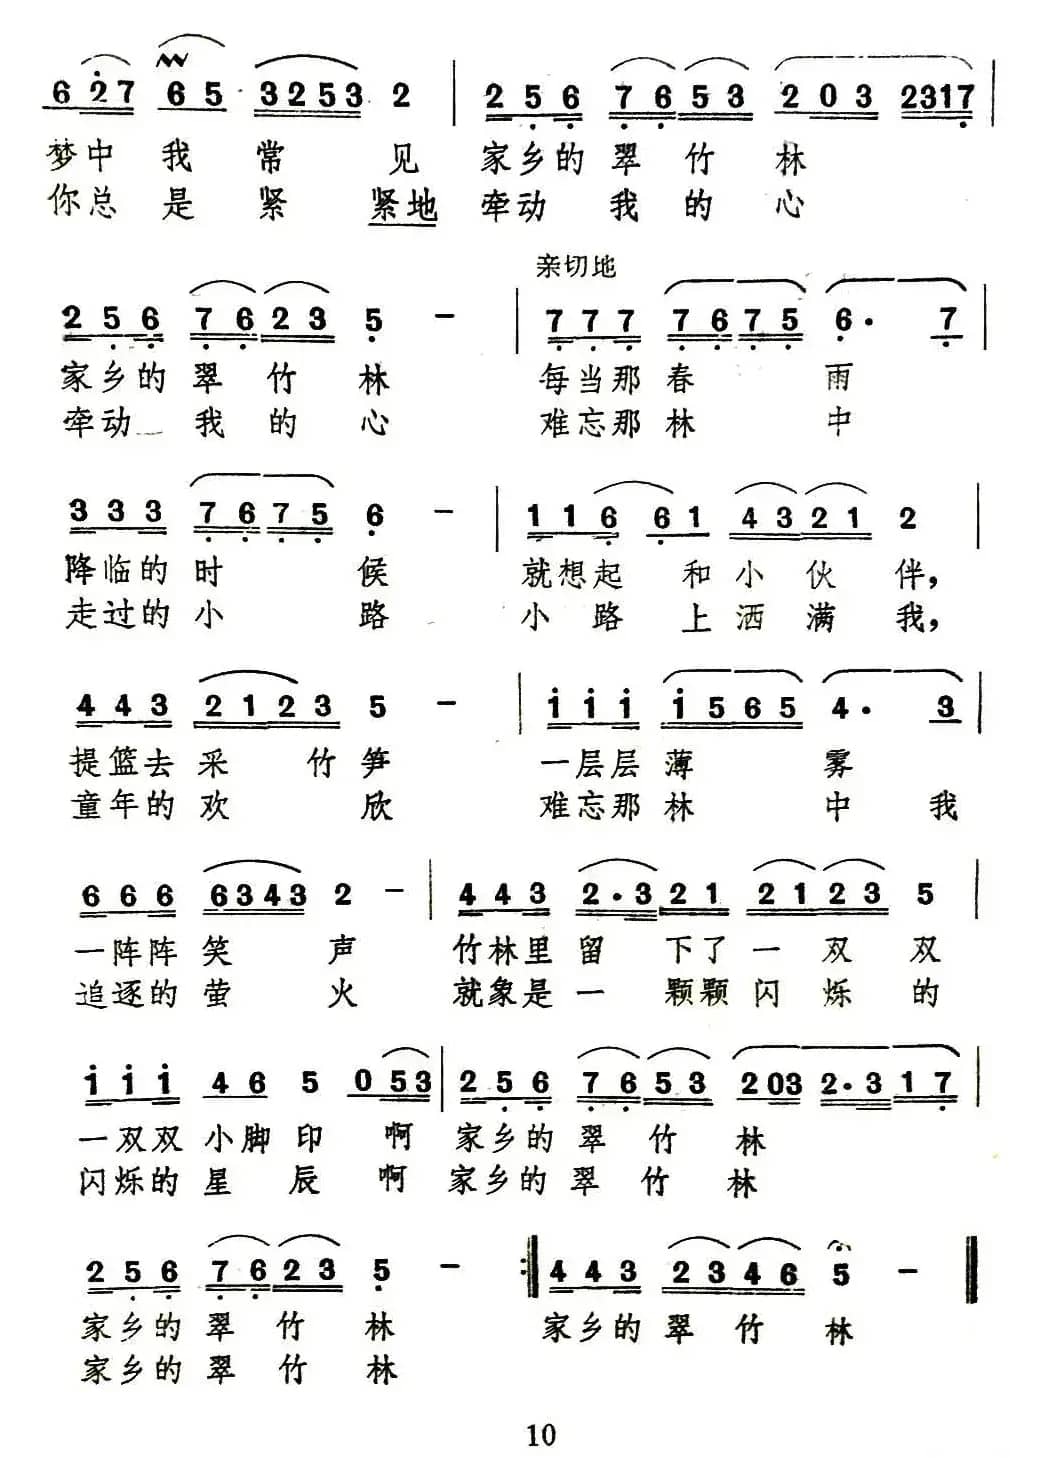 6 2̇ 7 6 5 3 2 5 3 2 | 2 5 6 7 6 5 3 2 0 3 2 3 1 7 |
梦中我常见 家乡的翠竹林
你总是紧紧地牵动我的心
亲切地
2 5 6 7 6 2 3 5 － | 7 7 7 7 6 7 5 6· 7 |
家乡的翠竹林 每当那春雨
牵动我的心 难忘那林中
3 3 3 7 6 7 5 6 － | 1 1 6 6 1 4 3 2 1 2 |
降临的时候 就想起和小伙伴，
走过的小路 小路上洒满我，
4 4 3 2 1 2 3 5 － | 1̇ 1̇ 1̇ 1̇ 5 6 5 4· 3 |
提篮去采竹笋 一层层薄雾
童年的欢欣 难忘那林中我
6 6 6 6 3 4 3 2 － | 4 4 3 2· 3 2 1 2 1 2 3 5 |
一阵阵笑声 竹林里留下了一双双
追逐的萤火 就象是一颗颗闪烁的
1̇ 1̇ 1̇ 4 6 5 0 5 3 | 2 5 6 7 6 5 3 2 0 3 2· 3 1 7 |
一双双小脚印啊 家乡的翠竹林
闪烁的星辰啊 家乡的翠竹林
2 5 6 7 6 2 3 5 － :‖ 4 4 3 2 3 4 6 5 － ‖
家乡的翠竹林 家乡的翠竹林
家乡的翠竹林
10